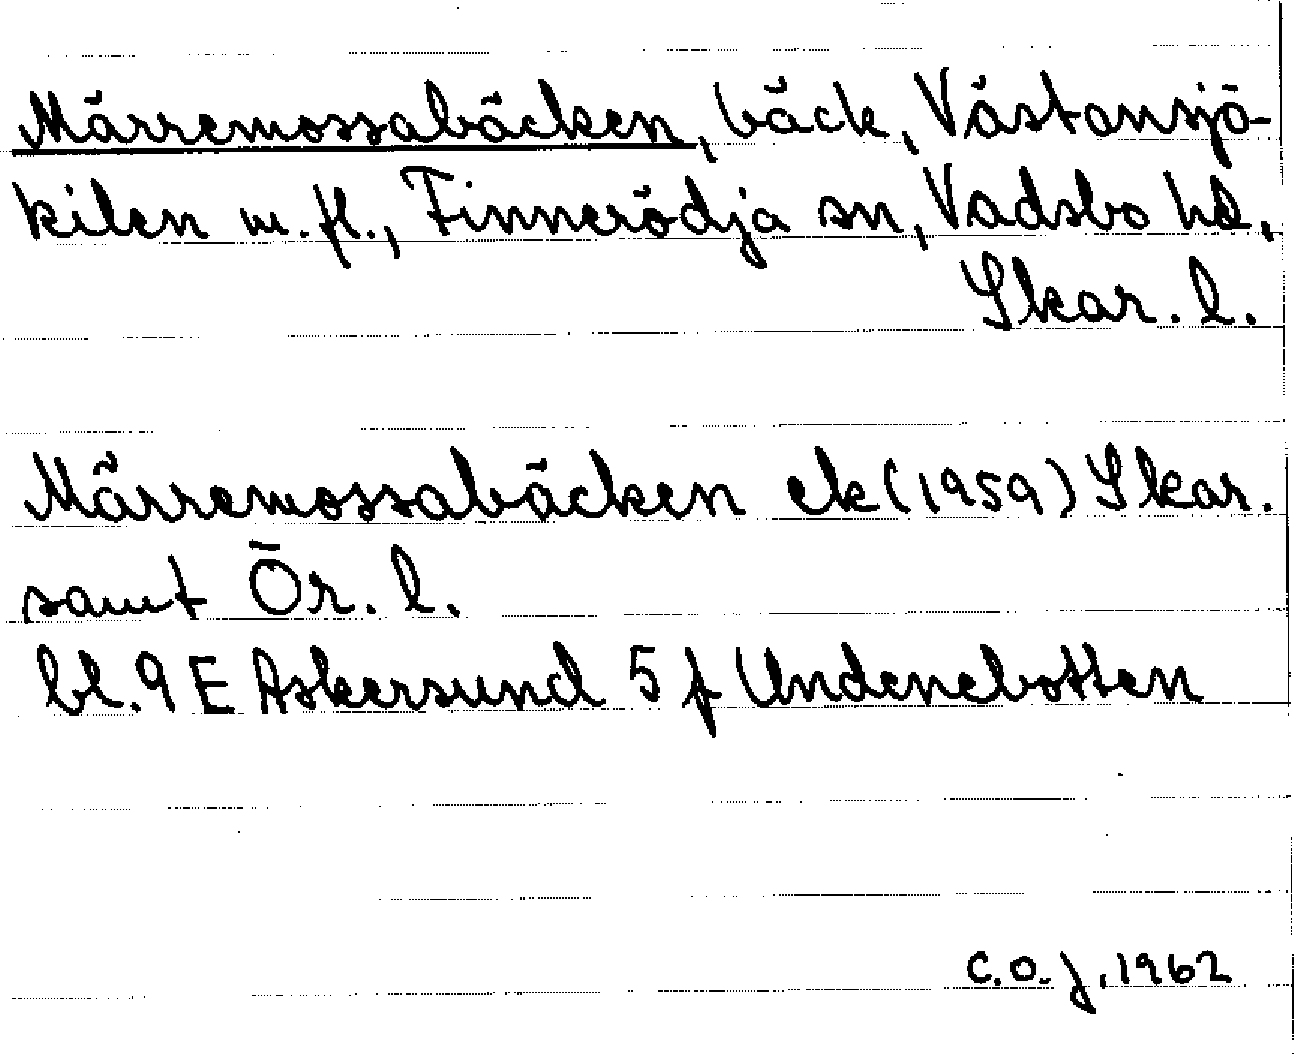 Märremossabäcken, bäck, Västansjö-
kilen m.fl., Finnerödja sn, Vadsbo hd,
Skar. l.
Märremossabäcken ek (1959) Skar.
samt Ör. l.
bl. 9 E Askersund 5 f Undenebotten
C.O.J. 1962